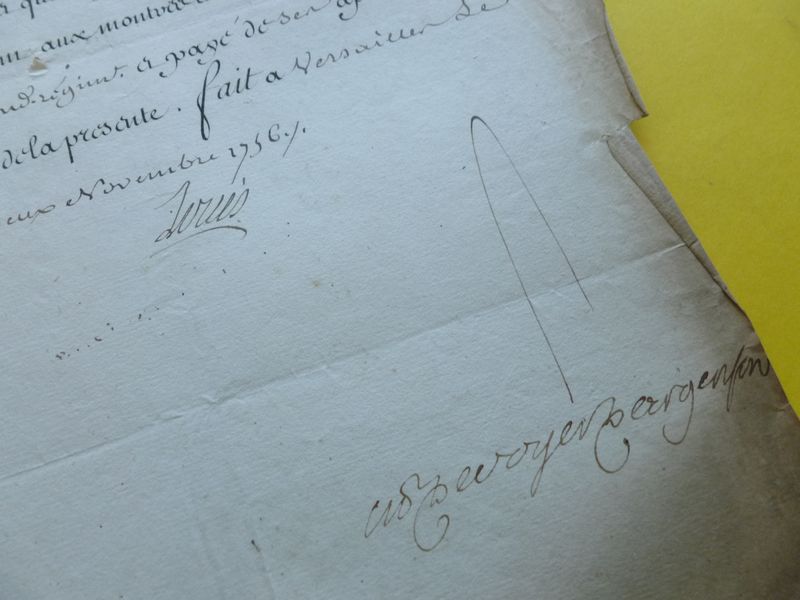 qu
aux montres
régim.t et payé de ses ap
de la presente. fait a Versailles Le
eux Novembre 1756./.
M de Voyer d'argenson